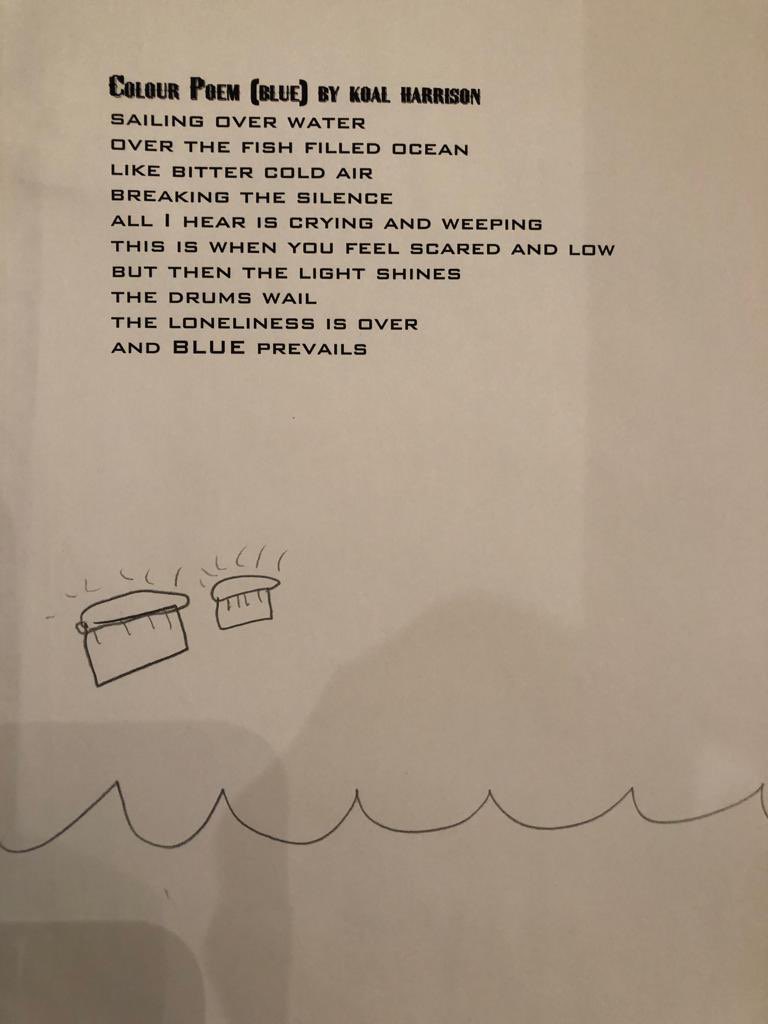 Colour Poem (blue) by koal harrison
SAILING OVER WATER
OVER THE FISH FILLED OCEAN
LIKE BITTER COLD AIR
BREAKING THE SILENCE
ALL I HEAR IS CRYING AND WEEPING
THIS IS WHEN YOU FEEL SCARED AND LOW
BUT THEN THE LIGHT SHINES
THE DRUMS WAIL
THE LONELINESS IS OVER
AND BLUE PREVAILS